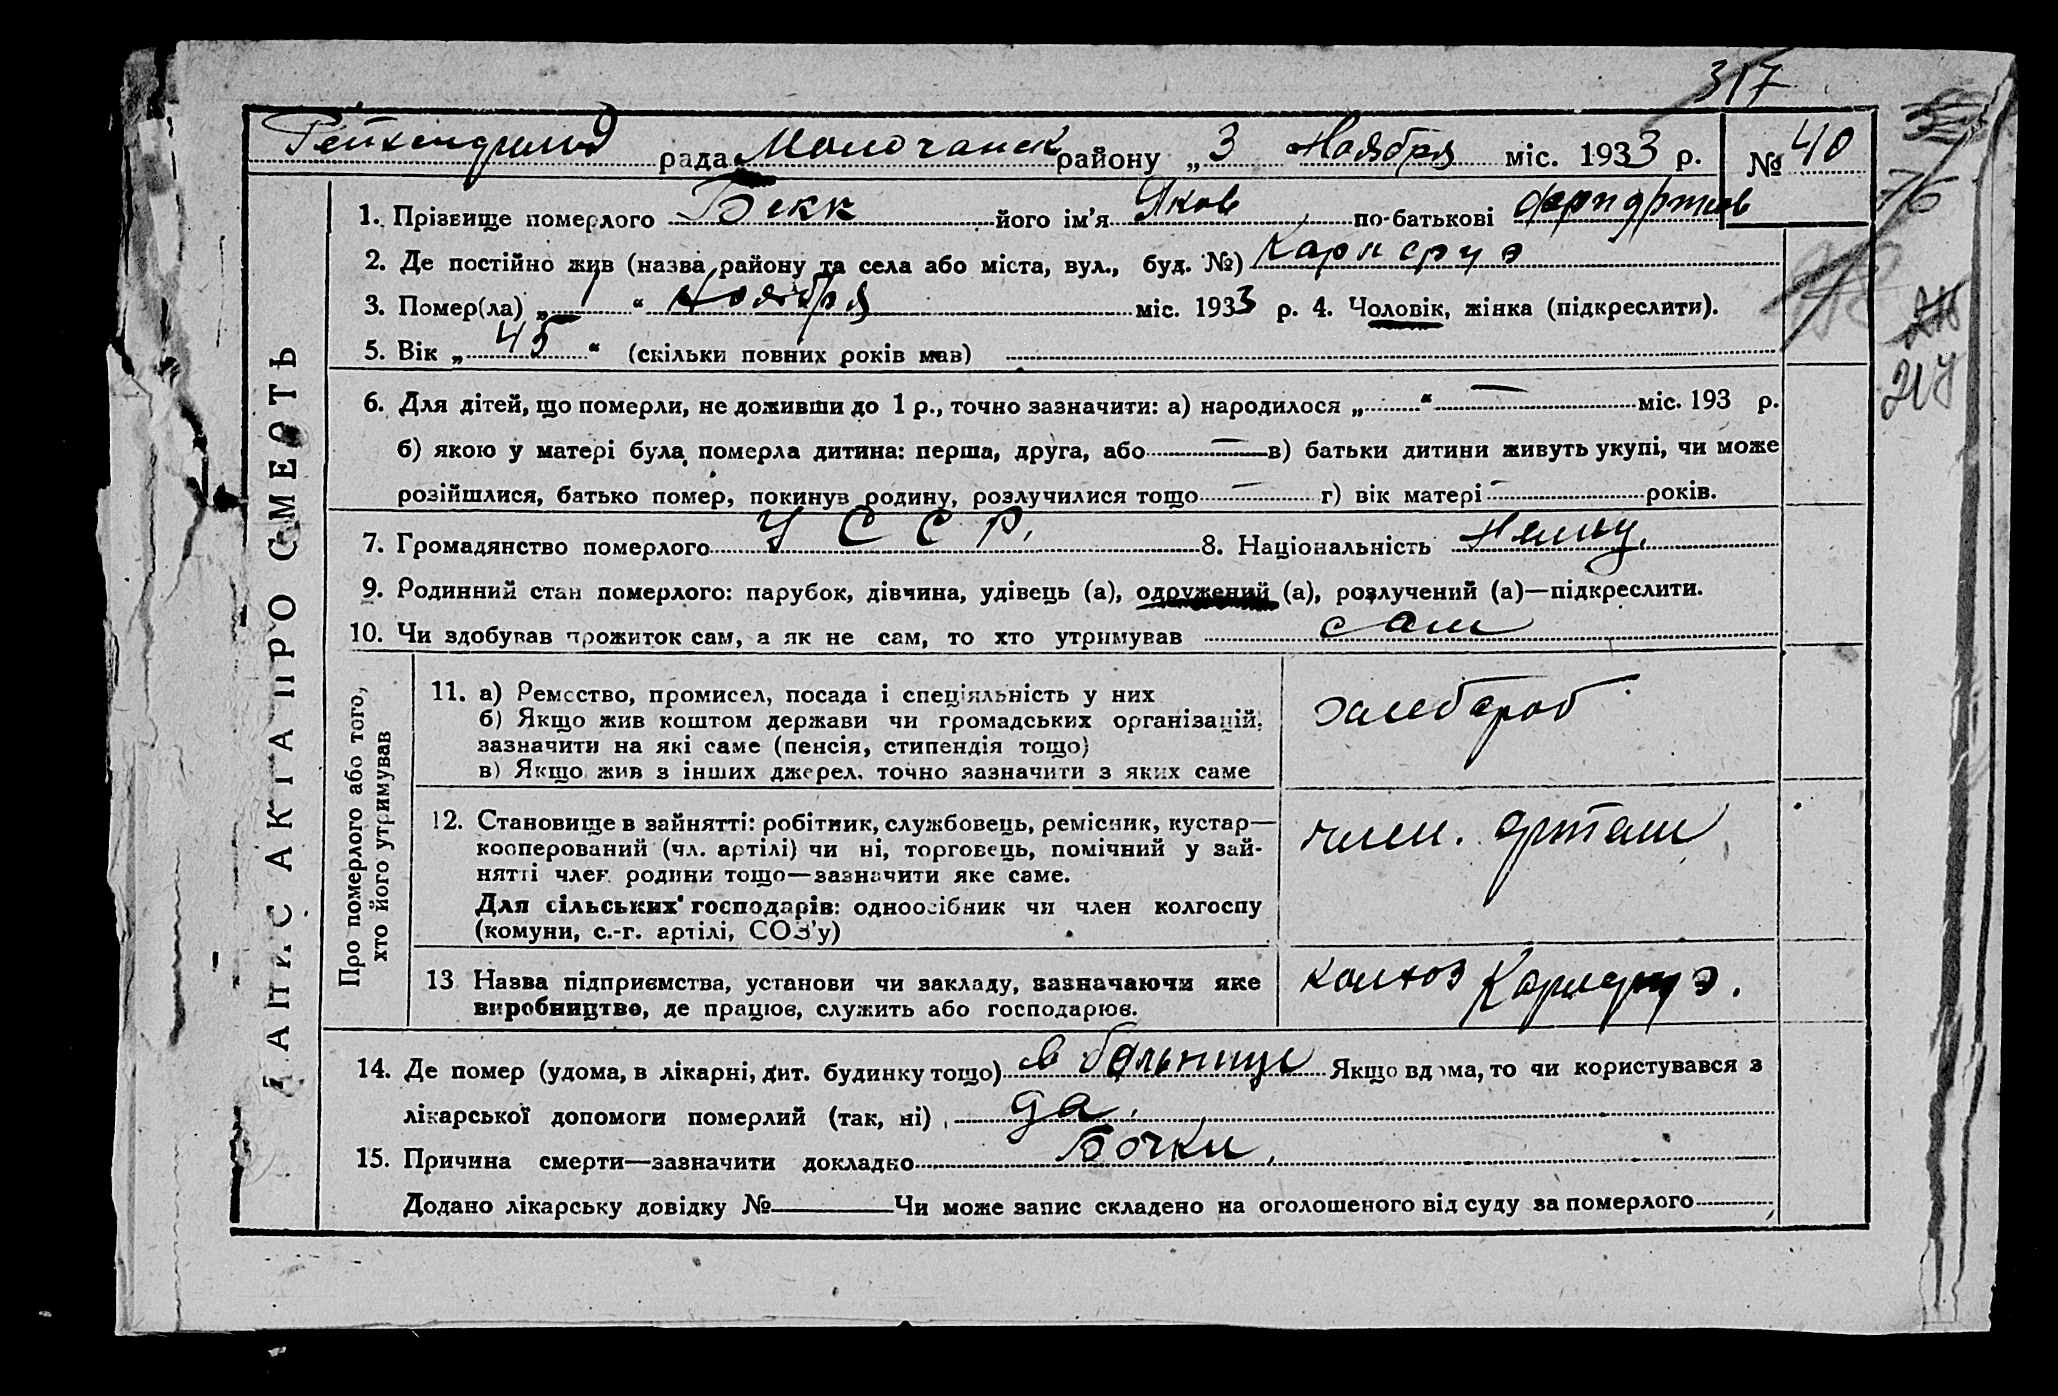 317
Рейхенфельд рада Молочанск району „ 3 Ноября міс. 1933 р. № 40
1. Прізвище померлого Бекк його ім'я Яков по-батькові
2. Де постійно жив (назва району та села або міста, вул., буд. №) Карлсруэ
3. Помер(ла) „ 1 “ Ноября міс. 1933 р. 4. Чоловік, жінка (підкреслити).
5. Вік „ 45 “ (скільки повних років мав)
6. Для дітей, що померли, не доживши до 1 р., точно зазначити: а) народилося „ “ — міс. 193 р.
б) якою у матері була померла дитина: перша, друга, або — в) батьки дитини живуть укупі, чи може
розійшлися, батько помер, покинув родину, розлучилися тощо — г) вік матері — років.
7. Громадянство померлого У С С Р. 8. Національність Немец.
9. Родинний стан померлого: парубок, дівчина, удівець (а), одружений (а), розлучений (а)—підкреслити.
10. Чи здобував прожиток сам, а як не сам, то хто утримував сам
ЗАПИС АКТА ПРО СМЕРТЬ
Про померлого або того,
хто його утримував
11. а) Ремество, промисел, посада і спеціяльність у них
б) Якщо жив коштом держави чи громадських організацій,
зазначити на які саме (пенсія, стипендія тощо)
в) Якщо жив з інших джерел, точно зазначити з яких саме
хлебороб
12. Становище в зайнятті: робітник, службовець, ремісник, кустар—
кооперований (чл. артілі) чи ні, торговець, помічний у зай-
нятті член родини тощо—зазначити яке саме.
Для сільських господарів: одноосібник чи член колгоспу
(комуни, с.-г. артілі, СОЗ'у)
член. артели
13 Назва підприємства, установи чи закладу, зазначаючи яке
виробництво, де працює, служить або господарює.
колхоз Карлсруэ.
14. Де помер (удома, в лікарні, дит. будинку тощо) в больнице Якщо вдома, то чи користувався з
лікарської допомоги померлий (так, ні) да.
15. Причина смерти—зазначити докладно Почки.
Додано лікарську довідку № Чи може запис складено на оголошеного від суду за померлого